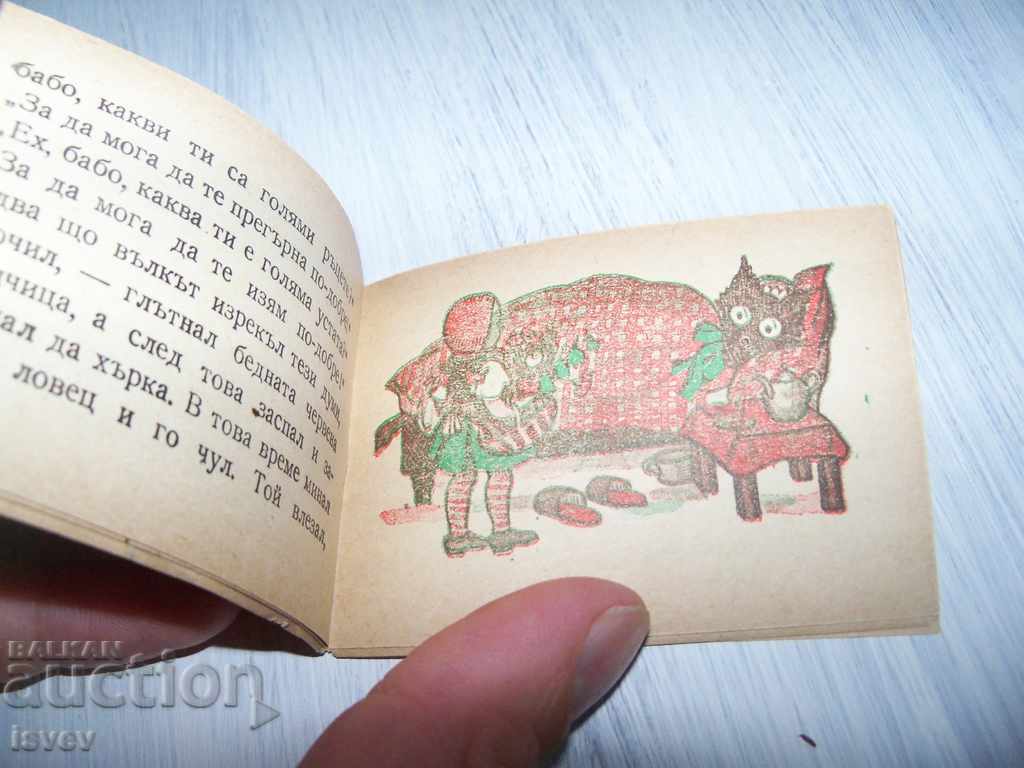 бабо, какви ти са големи ръцете!“
„За да мога да те прегърна по-добре!“
„Ех, бабо, каква ти е голяма устата!“
За да мога да те изям по-добре!“
два що вълкът изрекъл тези думи,
очил, — глътнал бедната червена
чица, а след това заспал и за-
ал да хърка. В това време минал
ловец и го чул. Той влезал,
BALKAN
auction
isvev